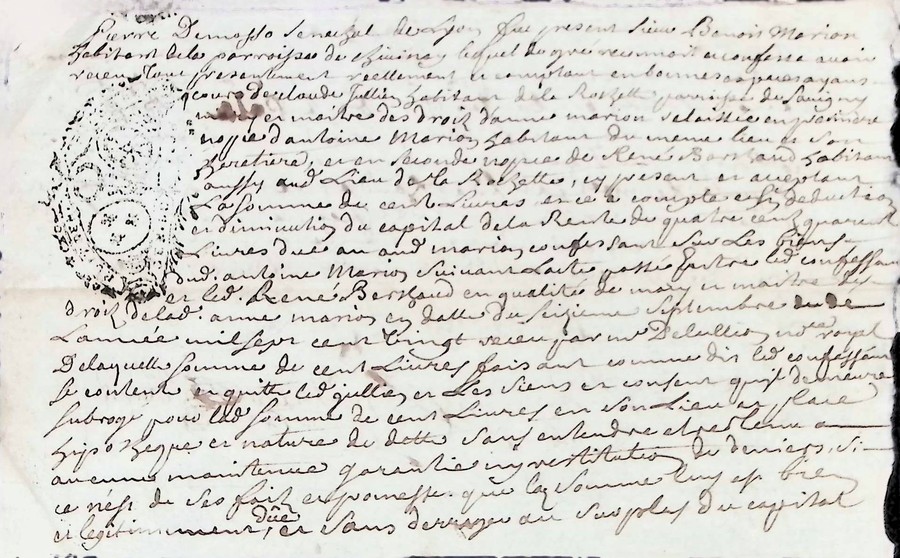 Pierre Demosso Senechal de Lyon fut present Sieur Benoit Marion
habitant de la parroisse de lequel de gré reconnoit et confesse avoir
receu tout presentement reellement et comptant en bonnes especes ayans
cours de claude Jullien habitant de la Rochette parroisse de Savigny
mary et maitre des droit danne marion relaissée en premiere
nopce d'antoine Marion habitant du meme lieu et son
heretiere, et en seconde nopce de René Berthaud habitant
aussy aud Lieu de la Rochette, cy present et acceptant
La Somme de cent Livres et ce a compte et deduction
et diminution du capital de la Rente de quatre cent quarente
Livres due au aud marion confessant Sur Les biens
dud. antoine Marion Suivant Lacte passé Entre led confessant
et led. René Berthaud en qualité de mary et maitre des
droit de lad. anne marion en datte du Seizieme Septembre de
Lannée mil Sept cent vingt receu par mr Delullion nre royal
De laquelle Somme de cent Livres faisant comme dit led confessant
se contente et quitte led jullien et Les Siens et consent quil demeure
subrogé pour lad Somme de cent Livres en Son Lieu et place
hipotheque et nature de dette Sans entendre etre tenu a
aucune maintenue garantie ny restitution de deniers, Si
ce nest de Ses fait et promesse que la Somme luy est bien
et legitimement düe et Sans deroger au Surplus du capital